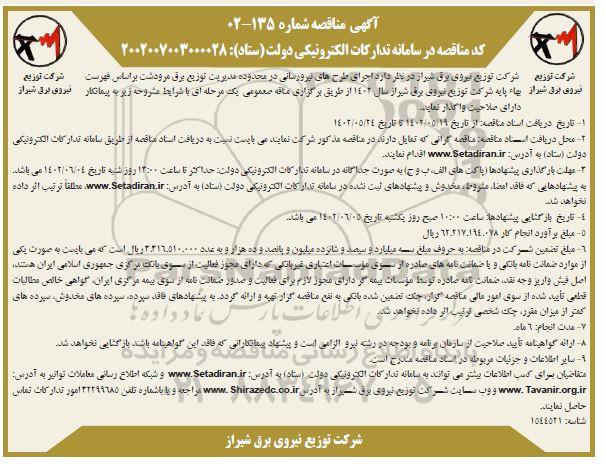 آگهی مناقصه شماره ۱۳۵-۰۲
کد مناقصه در سامانه تدارکات الکترونیکی دولت (ستاد): ۲۰۰۲۰۰۷۰۰۳۰۰۰۰۲۸
شرکت توزیع
نیروی برق شیراز
شرکت توزیع
نیروی برق شیراز
شرکت توزیع نیروی برق شیراز در نظر دارد اجرای طرح های نیرورسانی در محدوده مدیریت توزیع برق مرودشت براساس فهرست
بهاء پایه شرکت توزیع نیروی برق شیراز سال ۱۴۰۲ از طریق برگزاری مناقصه عمومی یک مرحله ای با شرایط مشروحه زیر به پیمانکار
دارای صلاحیت واگذار نماید.
۱- تاریخ دریافت اسناد مناقصه: از تاریخ ۱۴۰۲/۰۵/۱۹ تا تاریخ ۱۴۰۲/۰۵/۲۴
۲- محل دریافت اسناد مناقصه: مناقصه گرانی که تمایل دارند در مناقصه مذکور شرکت نمایند می بایست نسبت به دریافت اسناد مناقصه از طریق سامانه تدارکات الکترونیکی
دولت (ستاد) به آدرس: www.Setadiran.ir اقدام نمایند.
۳- مهلت بارگذاری پیشنهادها (پاکت های الف، ب و ج) به صورت جداگانه در سامانه تدارکات الکترونیکی دولت: حداکثر تا ساعت ۱۳:۰۰ روز شنبه تاریخ ۱۴۰۲/۰۶/۰۴ می باشد.
به پیشنهادهایی که فاقد امضا، مشروط، مخدوش و پیشنهادهای ثبت نشده در سامانه تدارکات الکترونیکی دولت (ستاد) به آدرس: www.Setadiran.ir، مطلقاً ترتیب اثر داده
نخواهد شد.
۴- تاریخ بازگشایی پیشنهادها: ساعت ۱۰:۰۰ صبح روز یکشنبه تاریخ ۱۴۰۲/۰۶/۰۵ می باشد.
۵- مبلغ برآورد انجام کار ۶۲.۲۱۷.۱۹۴.۰۷۸ ریال
۶- مبلغ تضمین شرکت در مناقصه: به حروف مبلغ سه میلیارد و سیصد و شانزده میلیون و پانصد و ده هزار و به عدد ۳.۳۱۶.۵۱۰.۰۰۰ ریال است که می بایست به صورت یکی
از موارد ضمانت نامه بانکی و یا ضمانت نامه های صادره از سوی مؤسسات اعتباری غیربانکی که دارای مجوز فعالیت از سوی بانک مرکزی جمهوری اسلامی ایران هستند،
اصل فیش واریز وجه نقد، ضمانت نامه صادره توسط مؤسسات بیمه گر دارای مجوز لازم برای فعالیت و صدور ضمانت نامه از سوی بیمه مرکزی ایران، گواهی خالص مطالبات
قطعی تأیید شده از سوی امور مالی مناقصه گزار، چک تضمین شده بانکی به نفع مناقصه گزار، تهیه و ارائه گردد. به پیشنهادهای فاقد سپرده، سپرده های مخدوش، سپرده های
کمتر از میزان مقرر، چک شخصی ترتیب اثر داده نخواهد شد.
۷- مدت انجام: ۶ ماه.
۸- ارائه گواهینامه تأیید صلاحیت از سازمان برنامه و بودجه در رشته نیرو الزامی است و پیشنهاد پیمانکارانی که فاقد این گواهینامه باشد بازگشایی نخواهد شد.
۹- سایر اطلاعات و جزئیات مربوطه در اسناد مناقصه مندرج است.
متقاضیان برای کسب اطلاعات بیشتر می توانند به سامانه تدارکات الکترونیکی دولت (ستاد) به آدرس: www.Setadiran.ir و شبکه اطلاع رسانی معاملات توانیر به آدرس:
www.Tavanir.org.ir و وب سایت شرکت توزیع نیروی برق شیراز به آدرس www.Shirazedc.co.ir مراجعه و یا باشماره تلفن ۳۲۲۹۹۶۸۵ امور تدارکات تماس
حاصل نمایند.
شناسه: ۱۵۴۴۵۲۱
شرکت توزیع نیروی برق شیراز